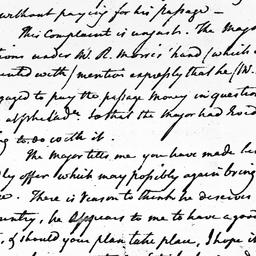 without paying for his passage —
This Complaint is unjust. The Majo
tions under Mr. R. Morris' hand (which
ented with) mention expressly that he (Mr.
gaged to pay the passage money in question
so that the Major had
g to do with it.
The Major tells me you have made
ly offer which may possibly again bring
e. There is reason to think he deserves
untry, he appears to me to have a good
, & should your plan take place, I hope it